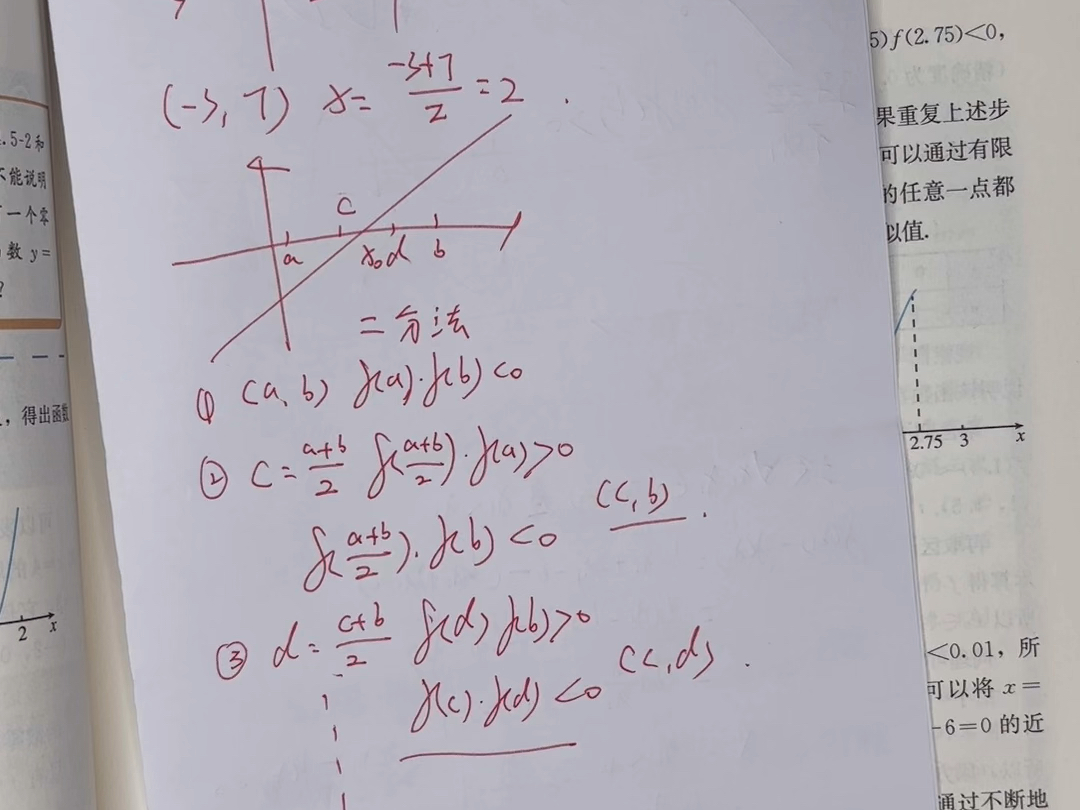 (-3, 7) x= \frac{-3+7}{2} =2 .
c
a x₀ d b
二分法
① (a, b) f(a)·f(b)<0
② c= \frac{a+b}{2} f(\frac{a+b}{2})·f(a)>0
f(\frac{a+b}{2})·f(b)<0 (c, b) .
③ d= \frac{c+b}{2} f(d) f(b)>0
f(c)·f(d)<0 (c, d) .
.5-2和
不能说明
一个零
数 y=
?
, 得出函数
2 x
5)f(2.75)<0,
果重复上述步
可以通过有限
的任意一点都
以值.
2.75 3 x
<0.01, 所
可以将 x=
-6=0 的近
通过不断地